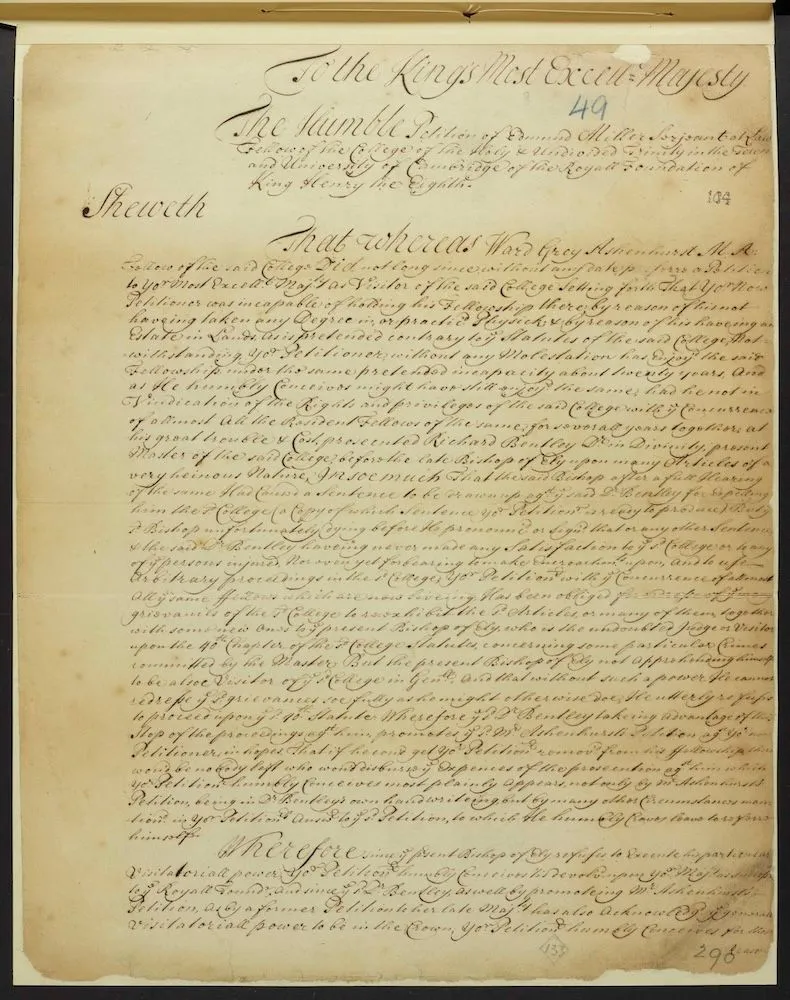 To the Kings Most Excellt: Majesty
49
The Humble Petition of Edmund Miller Serjeant at Law
Fellow of the College of the Holy & Undivided Trinity in the Town
and University of Cambridge of the Royall Foundation of
King Henry the Eighth.
104
Sheweth
That whereas Ward Grey Ashenhurst M. A.
Fellow of the said College Did not long since, without any date p a Petition
to yor Most Excellt Majty as Visitor of the said College Setting forth That yor Now
Petitioner was incapable of holding his Fellowship there, by reason of his not
haveing taken any Degree in, or practic'd Physick, & by reason of his haveing an
Estate in Lands, as is pretended contrary to ye Statutes of the said College, Not-
withstanding yor Petitioner, without any Molestation has Enjoy'd the said
Fellowship, under the same pretended incapacity about twenty years, And
as He humbly Conceives might have still enjoy'd the same, had he not in
Vindication of the Rights and priviledges of the said College with ye Concurrence
of allmost All the Resident Fellows of the same, for severall years together, at
his great trouble & Cost, prosecuted Richard Bentley Dr in Divinity, present
Master of the said College, before the late Bishop of Ely upon many Articles of a
very heinous Nature, Insoemuch That the said Bishop after a full Hearing
of the same Had Caused a Sentence to be drawn up agt ye said Dr Bentley for expelling
him the sd College (a Copy of which Sentence yor Petitionr is ready to produce) But ye
sd Bishop unfortunately dying before He pronounc'd or Sign'd that or any other Sentence
& the said Dr Bentley haveing never made any Satisfaction to ye sd College or to any
of ye persons injured, Nor even yet forbearing to make Encroachmts upon, And to use
Arbitrary proceedings in the sd College, yor Petitionr with ye Concurrence of allmost
All ye same ffellows which are now liveing, Has been obliged
grievances of the sd College to reexhibit the sd Articles, or many of them, together
with some new Ones to ye present Bishop of Ely, who is the undoubted Judge or Visitor
upon the 40th Chapter of the sd College Statutes, concerning some particular Crimes
committed by the Master, But the present Bishop of Ely not Apprehending himself
to be alsoe Visitor of ye sd College in Genll, And that without such a power He cannot
redress ye sd grievances soe fully as he might otherwise doe, He utterly refuses
to proceed upon ye sd 40th Statute, Wherefore ye sd Dr Bentley takeing advantage of this
Stop of the proceedings agt him, promotes ye sd Mr Ashenhursts Petition agt yor now
Petitioner, in hopes That if he could get yor Petitionr remov'd from his ffellowship, there
would be nobody left who would disburse ye Expences of the prosecution agt him, which
yor Petitionr humbly Conceives most plainly appears, not only by Mr Ashenhursts
Petition, being in Dr Bentley's own handwriteing, but by many other Circumstances men-
tion'd in yor Petitionrs Answr to ye sd Petition, to which He humbly Craves leave to referr
himselfe.
Wherefore since ye present Bishop of Ely refuses to Execute his particular
Visitatoriall power, yor Petitionr humbly Conceives its devolv'd upon yor Majty as
to ye Royall Foundr, And since ye sd Dr Bentley, as well by promoteing Mr Ashenhursts
Petition, as by a former Petition to her late Majty has also Acknowledg'd ye generall
Visitatoriall power to be in the Crown, yor Petitionr humbly Conceives for this
Reason
133
296